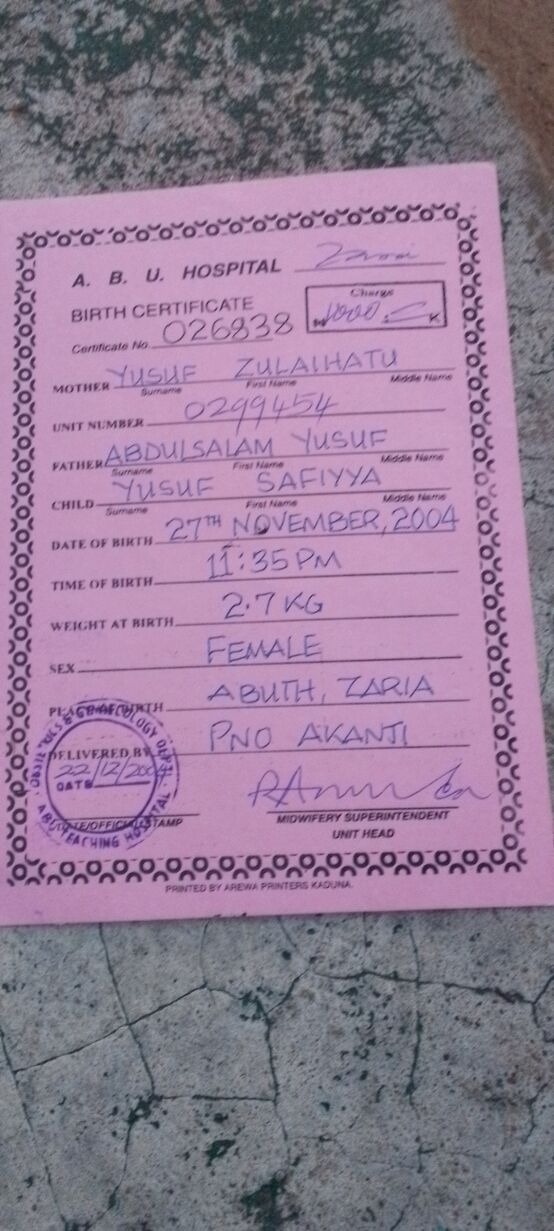 A. B. U. HOSPITAL Zaria
Charge
BIRTH CERTIFICATE
₦ 1000 : K
Certificate No. 026838
MOTHER YUSUF ZULAIHATU
Surname First Name Middle Name
UNIT NUMBER 0299454
FATHER ABDULSALAM YUSUF
Surname First Name Middle Name
CHILD YUSUF SAFIYYA
Surname First Name Middle Name
DATE OF BIRTH 27TH NOVEMBER, 2004
TIME OF BIRTH 11:35 PM
WEIGHT AT BIRTH 2.7 KG
SEX FEMALE
PLACE OF BIRTH ABUTH, ZARIA
DELIVERED BY PNO AKANJI
OBSTETRICS & GYNAECOLOGY DEPT.
22/12/2004
DATE
ABU TEACHING HOSPITAL
DATE/OFFICIAL STAMP
MIDWIFERY SUPERINTENDENT
UNIT HEAD
PRINTED BY AREWA PRINTERS KADUNA.